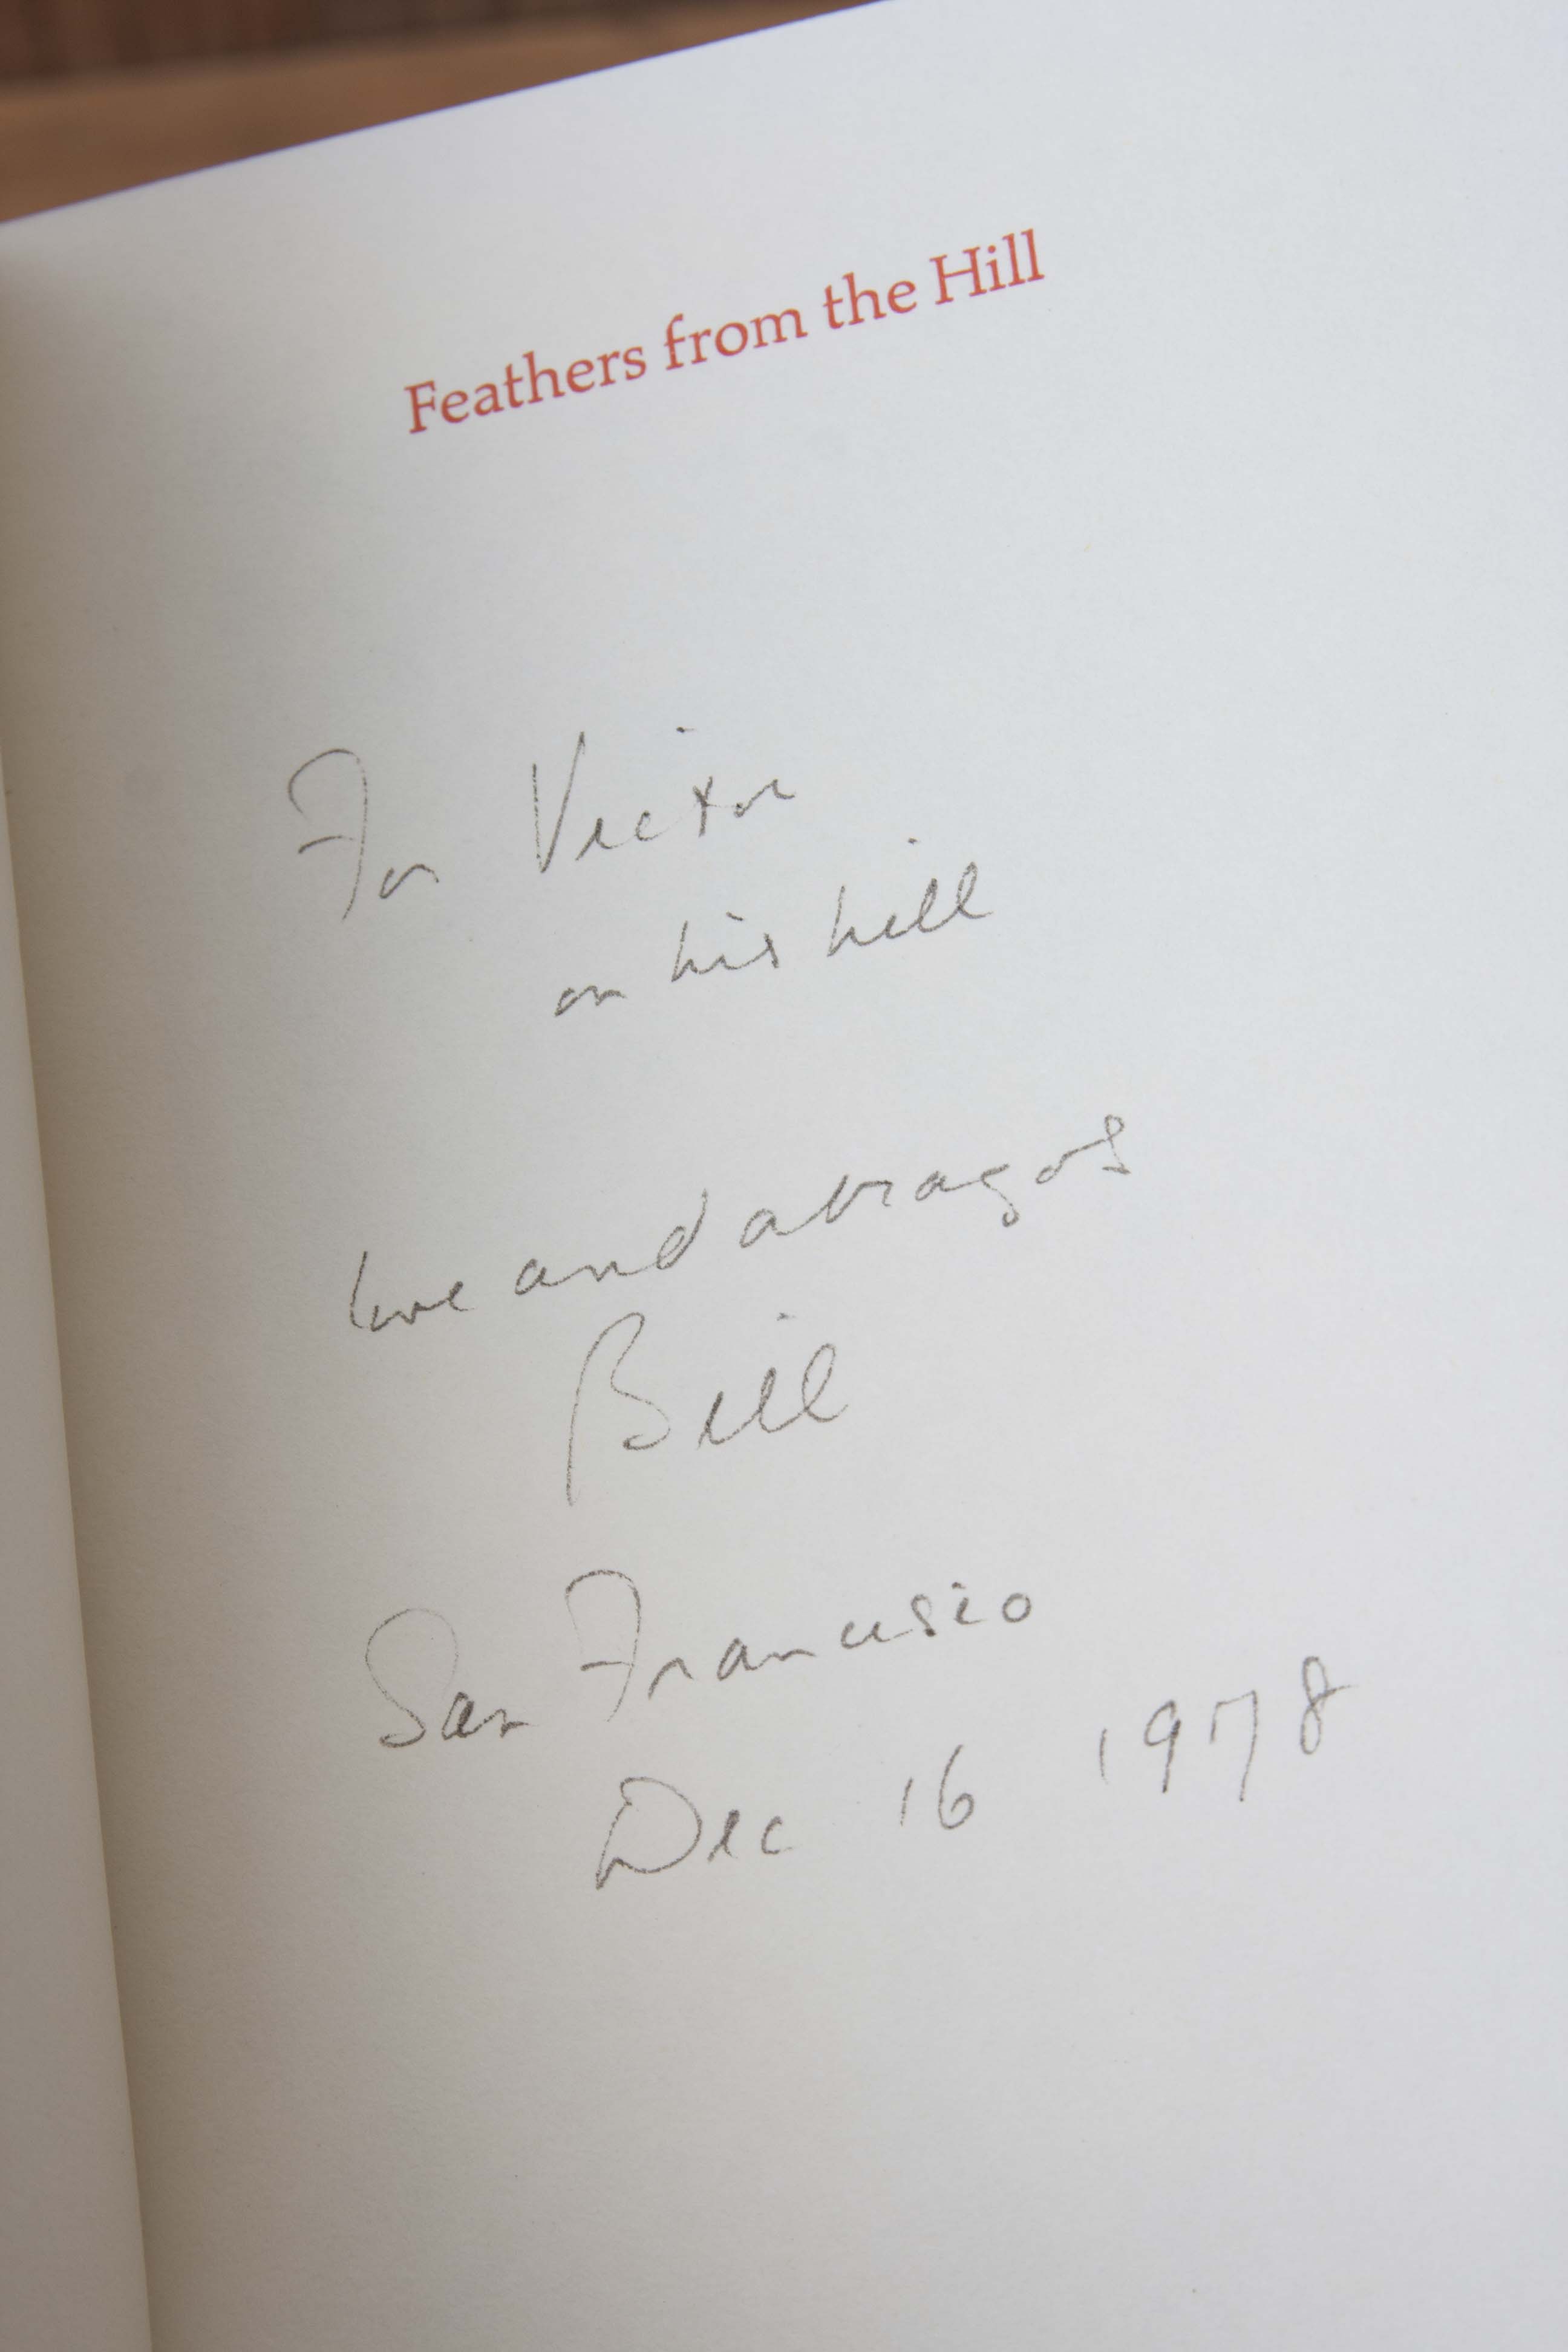 Feathers from the Hill
For Victor
on his hill
love and abragos
Bill
San Francisco
Dec 16 1978